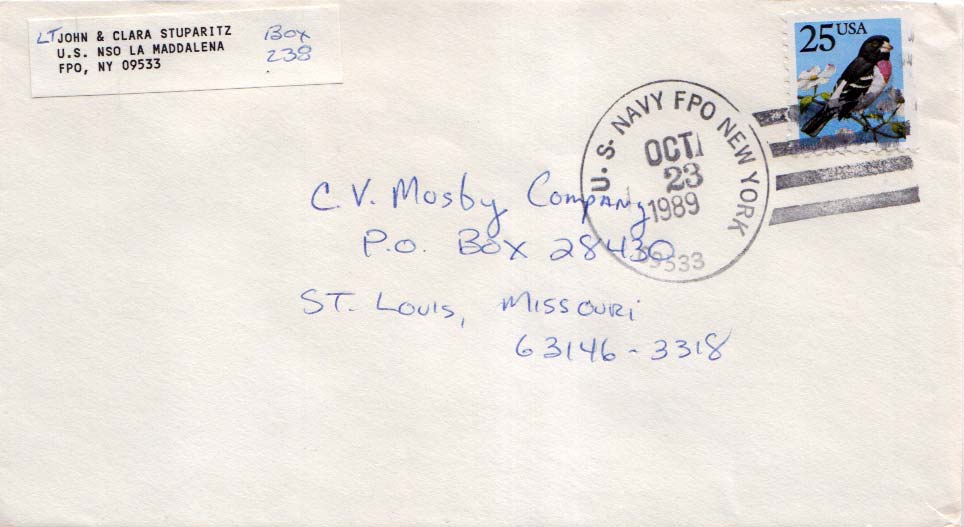 LT JOHN & CLARA STUPARITZ Box
U.S. NSO LA MADDALENA 238
FPO, NY 09533
25 USA
U.S. NAVY FPO NEW YORK
OCT
23
1989
09533
C.V. Mosby Company
P.O. Box 28430
ST. LOUIS, MISSOURI
63146-3318